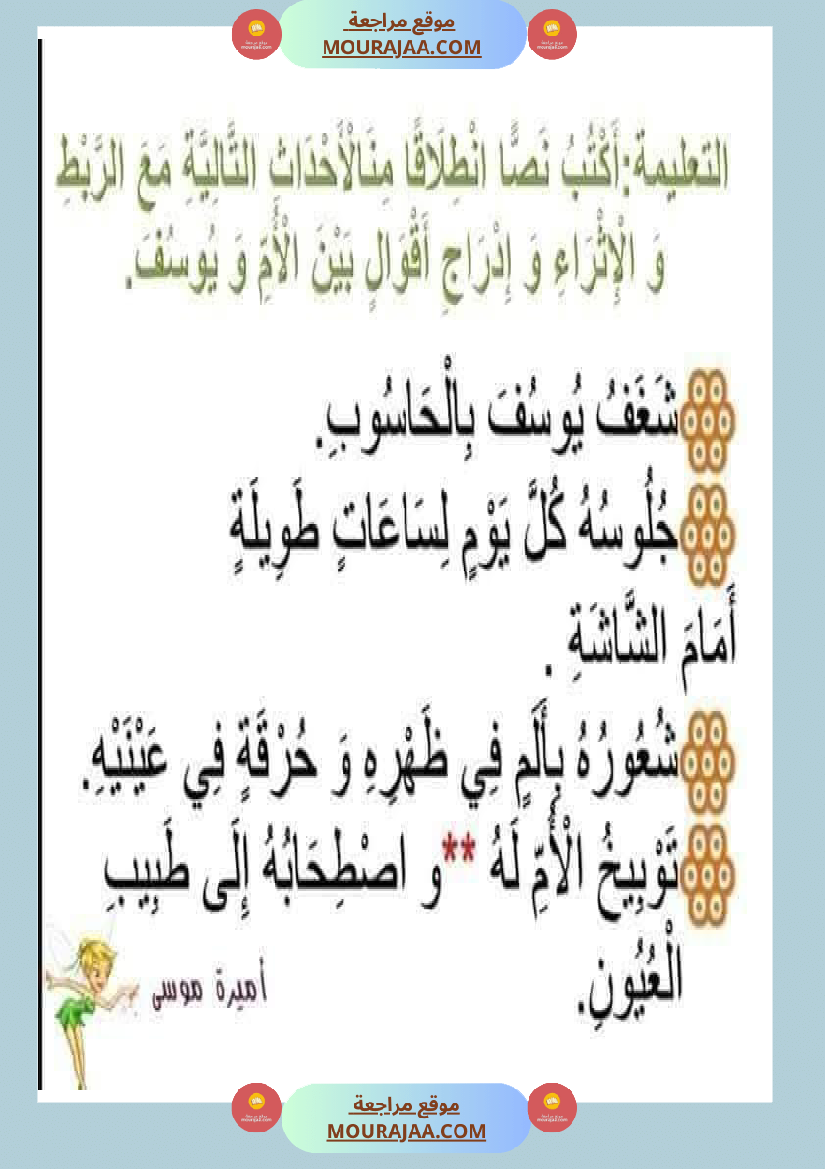 موقع مراجعة
MOURAJAA.COM
التعليمة:أَكْتُبُ نَصًّا انْطِلَاقًا مِنَالْأَحْدَاثِ التَّالِيَّةِ مَعَ الرَّبْطِ
وَ الْإِثْرَاءِ وَ إِدْرَاجِ أَقْوَالٍ بَيْنَ الْأُمِّ وَ يُوسُفَ.
شَغَفُ يُوسُفَ بِالْحَاسُوبِ.
جُلُوسُهُ كُلَّ يَوْمٍ لِسَاعَاتٍ طَوِيلَةٍ
أَمَامَ الشَّاشَةِ .
شُعُورُهُ بِأَلَمٍ فِي ظَهْرِهِ وَ حُرْقَةٍ فِي عَيْنَيْهِ.
تَوْبِيخُ الْأُمِّ لَهُ **و اصْطِحَابُهُ إِلَى طَبِيبِ
الْعُيُونِ.
أميرة موسى
موقع مراجعة
MOURAJAA.COM